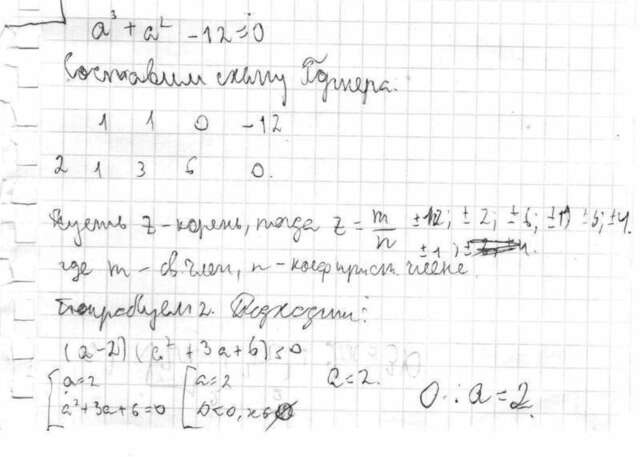 a³ + a² - 12 = 0
Составим схему Горнера:
1 1 0 -12
2 1 3 6 0.
Пусть z - корень, тогда z = m/n ±12; ±2; ±6; ±3; ±4.
±1
где m - св член, n - коэф при ст. члене.
Попробуем 2. Подходит:
(a-2)(a² + 3a + 6) = 0
[a=2 [a=2 a=2. О.: a=2.
a²+3a+6=0 D<0,